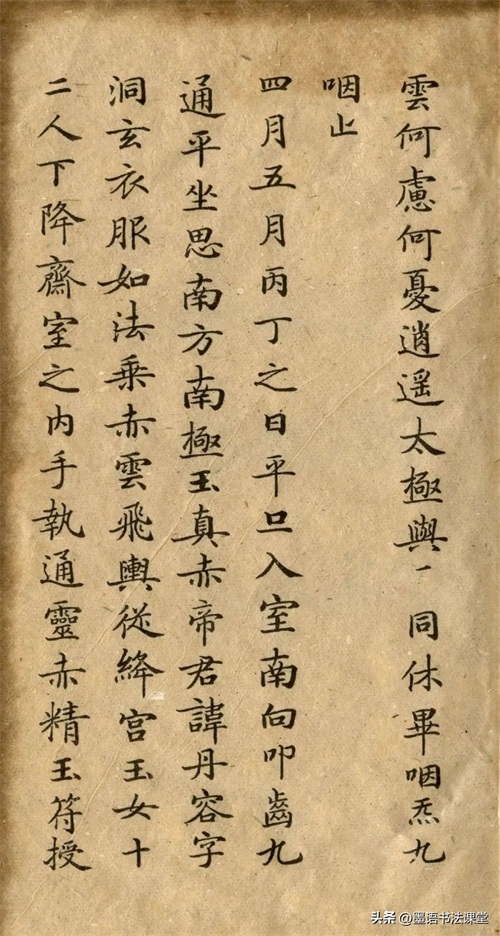 雲何慮何憂逍遥太極與一同休畢咽炁九
咽止
四月五月丙丁之日平旦入室南向叩齒九
通平坐思南方南極玉真赤帝君諱丹容字
洞玄衣服如法乗赤雲飛輿従絳宮玉女十
二人下降齋室之内手執通靈赤精玉符授
头条 @墨语书法课堂